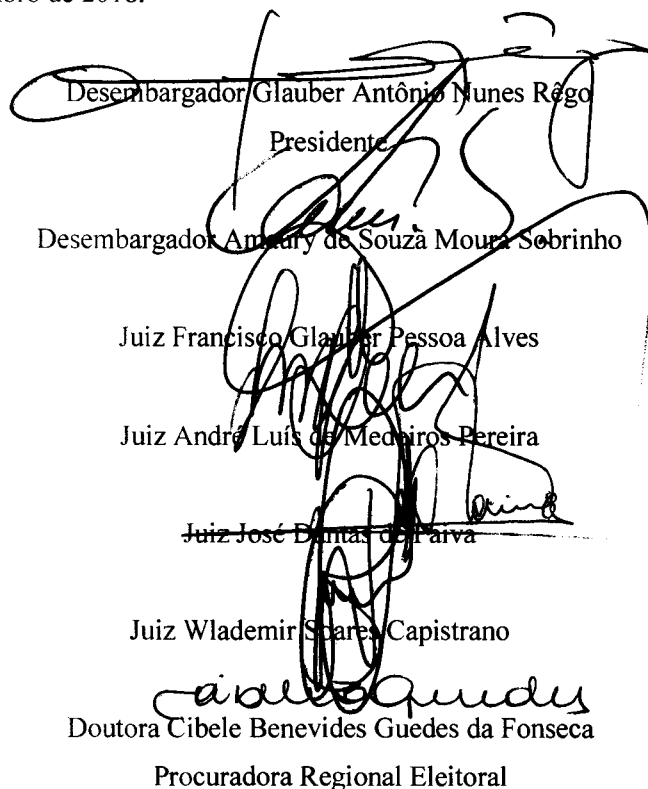 Desembargador Glauber Antônio Nunes Rêgo
Presidente
Desembargador Amaury de Souza Moura Sobrinho
Juiz Francisco Glauber Pessoa Alves
Juiz André Luís de Medeiros Pereira
Juiz José Dantas de Paiva
Juiz Wlademir Soares Capistrano
Doutora Cibele Benevides Guedes da Fonseca
Procuradora Regional Eleitoral